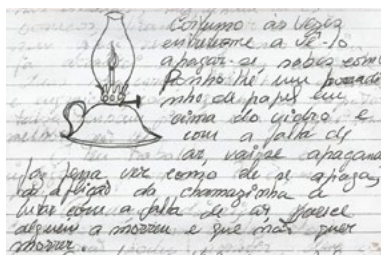 Costumo às vezes
entreter-me a vê-lo
apagar-se, sabes como
Ponho-lhe um
nho de papel em
cima do vidro e
com a falta de
ar, vai-se apagando
Faz pena ver como de se apaga,
na aflição da chamazinha a
lutar com a falta de ar, parece
alguem a morrer e que não quer
morrer.